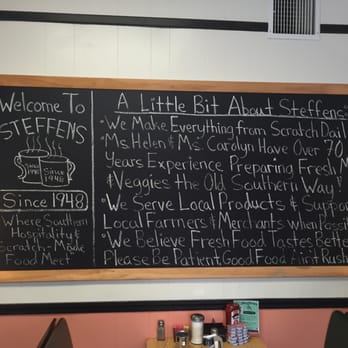 Welcome To
STEFFENS
Since
1948
Since 1948
Where Southern
Hospitality &
Scratch-Made
Food Meet"
A Little Bit About Steffens
•We Make Everything from Scratch Dail
•Ms. Helen & Ms. Carolyn Have Over 70
Years Experience Preparing Fresh
& Veggies the Old Southern Way!
•We Serve Local Products & Suppo
Local Farmers & Merchants when Possi
•We Believe Fresh Food Tastes Bette
Please Be Patient, Good Food Aint Rush